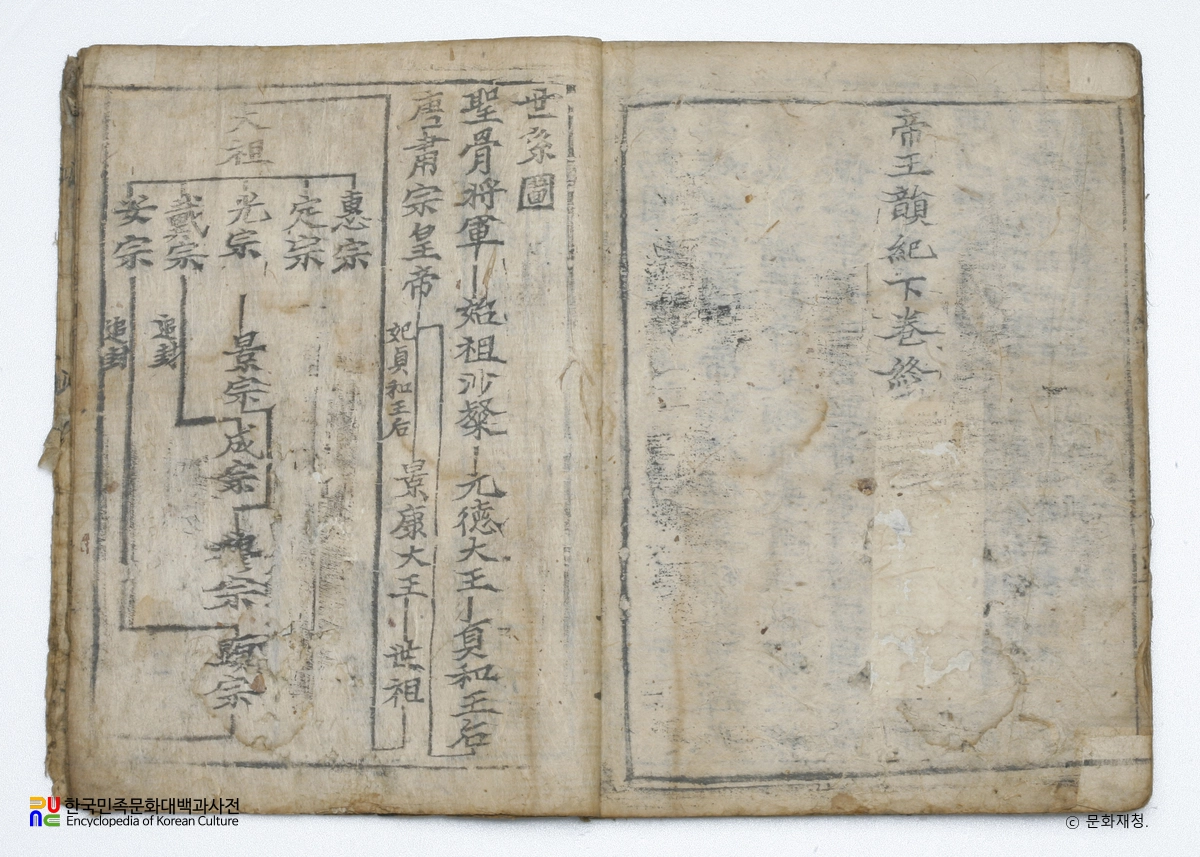 帝王韻紀下卷終
世系圖
聖骨將軍
始祖沙粲
元德大王
貞和王后
唐肅宗皇帝
妃貞和王后
景康大王
世祖
大祖
惠宗
定宗
光宗
戴宗
安宗
景宗
成宗
穆宗
顯宗
追封
追封
한국민족문화대백과사전
Encyclopedia of Korean Culture
ⓒ 문화재청.